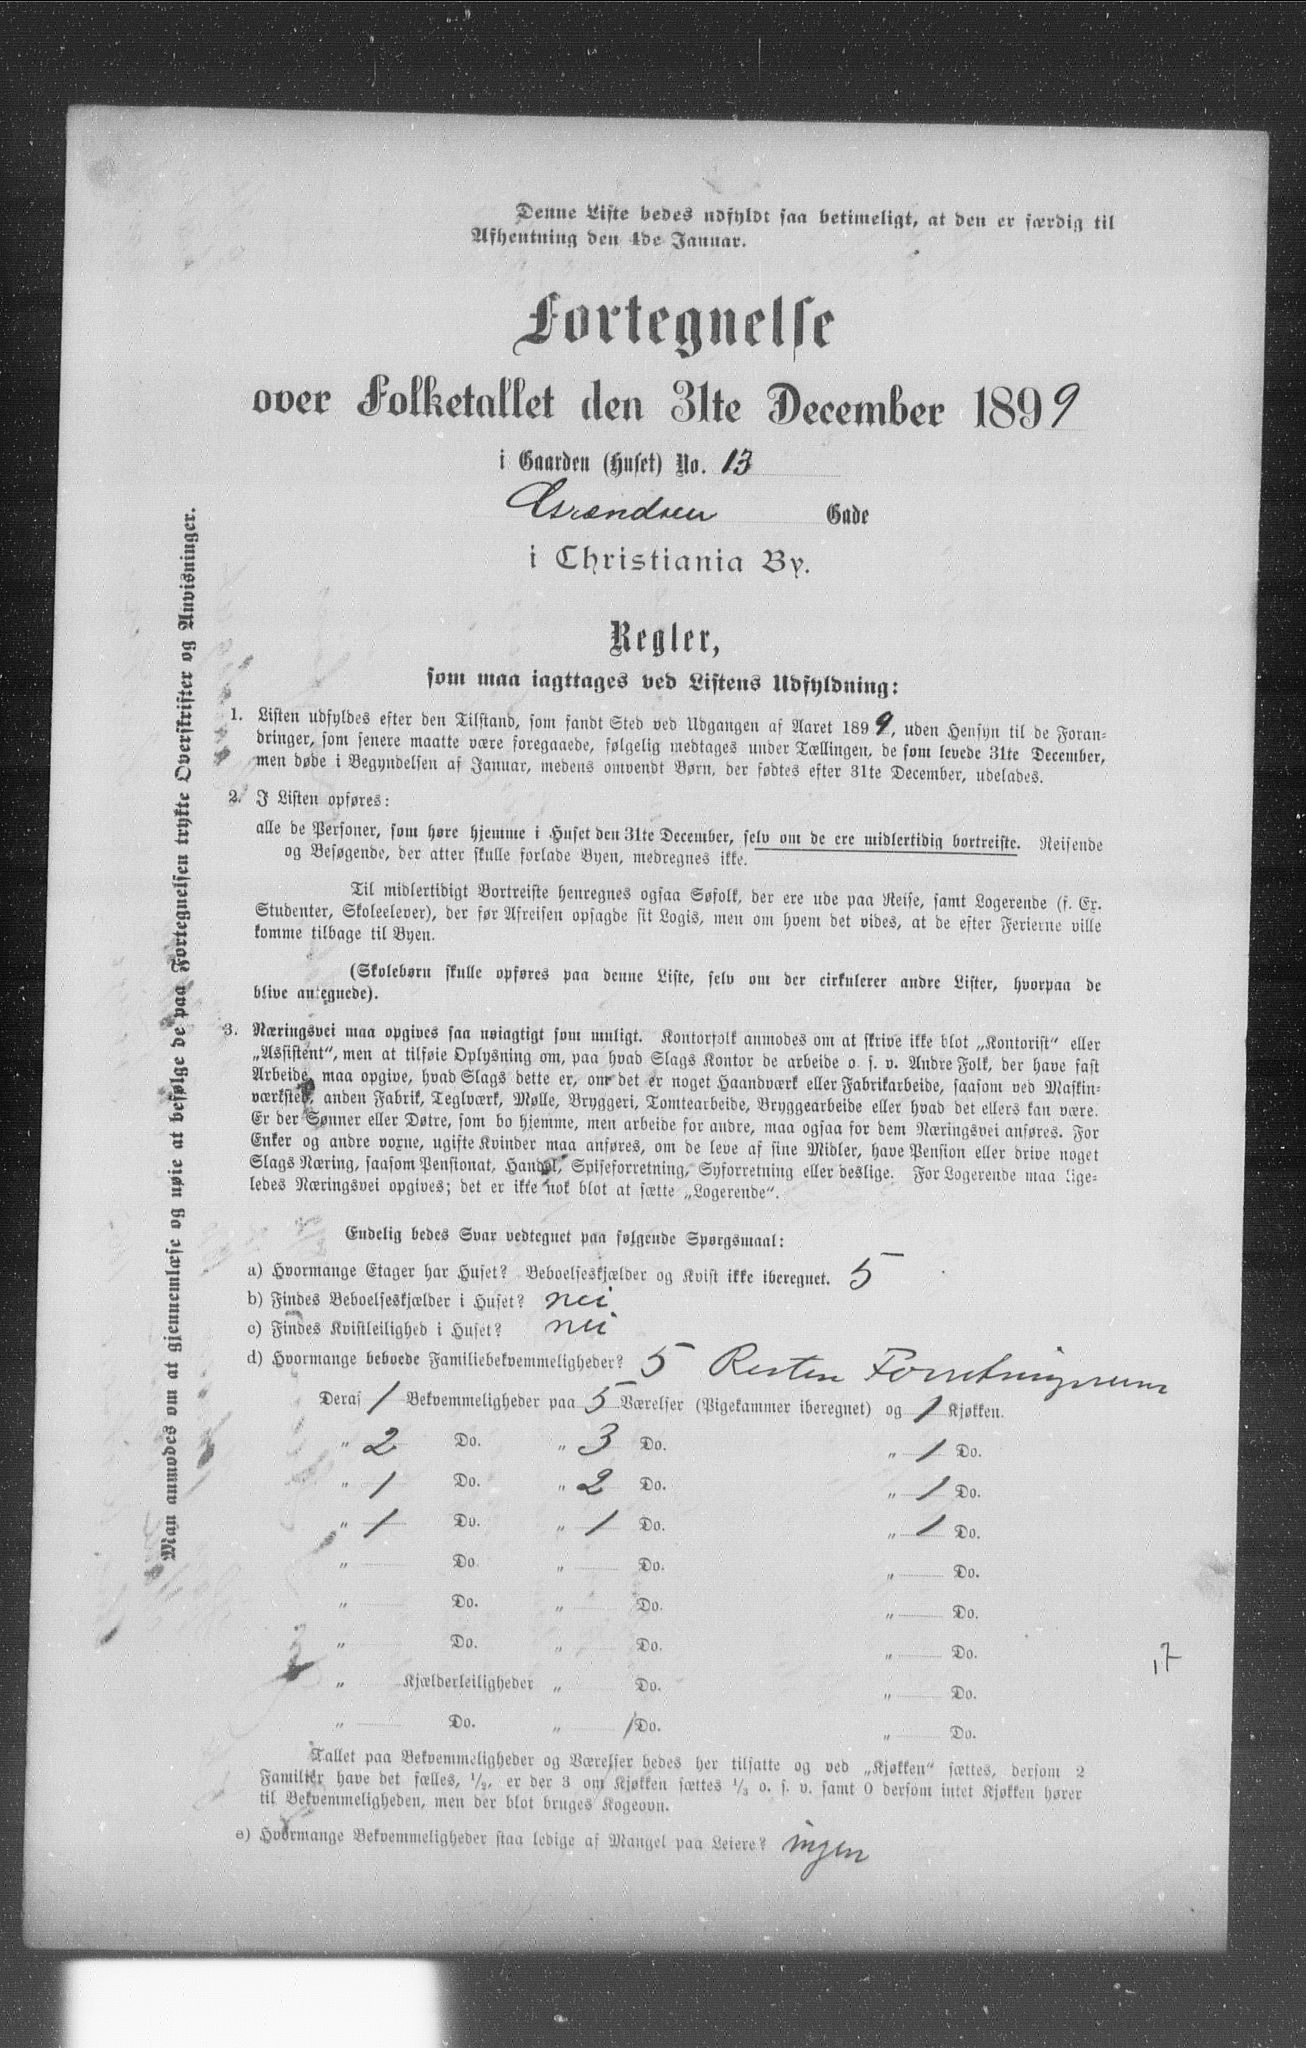 Denne Liste bedes udfyldt saa betimeligt, at den er færdig til
Afhentning den 4de Januar.
Fortegnelse
over Folketallet den 31te December 1899
i Gaarden (Huset) No. 13
Grændsen Gade
i Christiania By.
Regler,
som maa iagttages ved Listens Udfyldning:
1. Listen udfyldes efter den Tilstand, som fandt Sted ved Udgangen af Aaret 1899, uden Hensyn til de Foran-
dringer, som senere maatte være foregaaede, følgelig medtages under Tællingen, de som levede 31te December,
men døde i Begyndelsen af Januar, medens omvendt Børn, der fødtes efter 31te December, udelades.
2. I Listen opføres:
alle de Personer, som høre hjemme i Huset den 31te December, selv om de ere midlertidig bortreiste. Reisende
og Besøgende, der atter skulle forlade Byen, medregnes ikke.
Til midlertidigt Bortreiste henregnes ogsaa Søfolk, der ere ude paa Reise, samt Logerende (f. Ex.
Studenter, Skoleelever), der før Afreisen opsagde sit Logis, men om hvem det vides, at de efter Ferierne ville
komme tilbage til Byen.
(Skolebørn skulle opføres paa denne Liste, selv om der cirkulerer andre Lister, hvorpaa de
blive antegnede).
3. Næringsvei maa opgives saa nøiagtigt som muligt. Kontorfolk anmodes om at skrive ikke blot „Kontorist“ eller
„Assistent“, men at tilføie Oplysning om, paa hvad Slags Kontor de arbeide o. s. v. Andre Folk, der have fast
Arbeide, maa opgive, hvad Slags dette er, om det er noget Haandværk eller Fabrikarbeide, saasom ved Maskin-
værksted, anden Fabrik, Teglværk, Mølle, Bryggeri, Tomtearbeide, Bryggearbeide eller hvad det ellers kan være.
Er der Sønner eller Døtre, som bo hjemme, men arbeide for andre, maa ogsaa for dem Næringsvei anføres. For
Enker og andre voxne, ugifte Kvinder maa anføres, om de leve af sine Midler, have Pension eller drive noget
Slags Næring, saasom Pensionat, Handel, Spiseforretning, Syforretning eller deslige. For Logerende maa lige-
ledes Næringsvei opgives; det er ikke nok blot at sætte „Logerende“.
Endelig bedes Svar vedtegnet paa følgende Spørgsmaal:
a) Hvormange Etager har Huset? Beboelseskjælder og Kvist ikke iberegnet. 5
b) Findes Beboelseskjælder i Huset? nei
c) Findes Kvistleilighed i Huset? nei
d) Hvormange beboede Familiebekvemmeligheder? 5 Resten Forretningsrum
Deraf 1 Bekvemmeligheder paa 5 Værelser (Pigekammer iberegnet) og 1 Kjøkken.
„ 2 Do. „ 3 Do. „ 1 Do.
„ 1 Do. „ 2 Do. „ 1 Do.
„ 1 Do. „ 1 Do. „ 1 Do.
„ Do. „ Do. „ Do.
„ Do. „ Do. „ Do.
„ Do. „ Do. „ Do.
„ Kjælderleiligheder „ Do. „ Do.
„ Do. „ Do. „ Do.
17
Tallet paa Bekvemmeligheder og Værelser bedes her tilsatte og ved „Kjøkken“ sættes, dersom 2
Familier have det fælles, 1/2, er der 3 om Kjøkken sættes 1/3 o. s. v. samt 0 dersom intet Kjøkken hører
til Bekvemmeligheden, men der blot bruges Kogeovn.
e) Hvormange Bekvemmeligheder staa ledige af Mangel paa Leiere? ingen
Man anmodes om at gjennemlæse og nøie at befølge de paa Fortegnelsen trykte Overskrifter og Anvisninger.